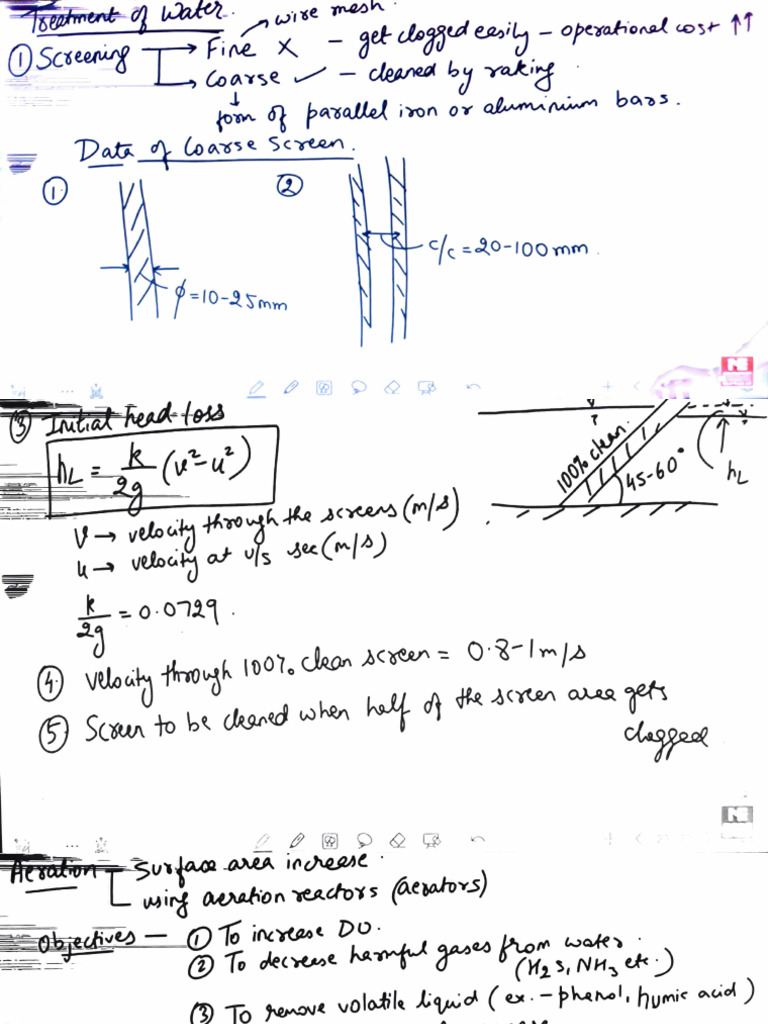 Treatment of Water.
wire mesh
① Screening → Fine X – get clogged easily – operational cost ↑↑
→ Coarse ✓ – cleaned by raking
form of parallel iron or aluminium bars.
Data of Coarse Screen.
①
②
c/c = 20-100 mm.
ϕ = 10-25mm
③ Initial head loss
100% clean.
h_L = k/2g (v²-u²)
45-60°
h_L
V → velocity through the screens (m/s)
u → velocity at u/s sec (m/s)
k/2g = 0.0729.
④ Velocity through 100% clean screen = 0.8-1m/s
⑤ Screen to be cleaned when half of the screen area gets
clogged
Aeration – Surface area increase.
using aeration reactors (aerators)
Objectives – ① To increase DO.
② To decrease harmful gases from water.
(H₂S, NH₃ etc.)
③ To remove volatile liquid (ex. – phenol, humic acid)